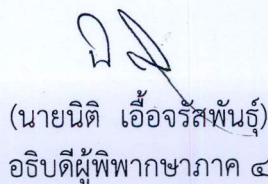 (นายนิติ เอื้อจรัสพันธุ์)
อธิบดีผู้พิพากษาภาค ๔